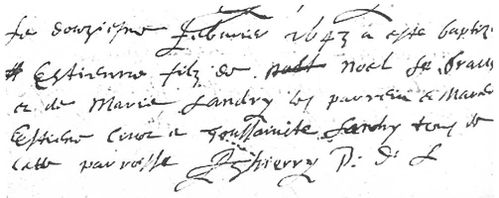 Le douziesme Febvrier 1643 a este baptiz
Estienne filz de Noel Le
et de Marie Landry les parrein et Mareine
Estiene et Toussainite Landry tous de
cette parroisse Thierry P. d. L